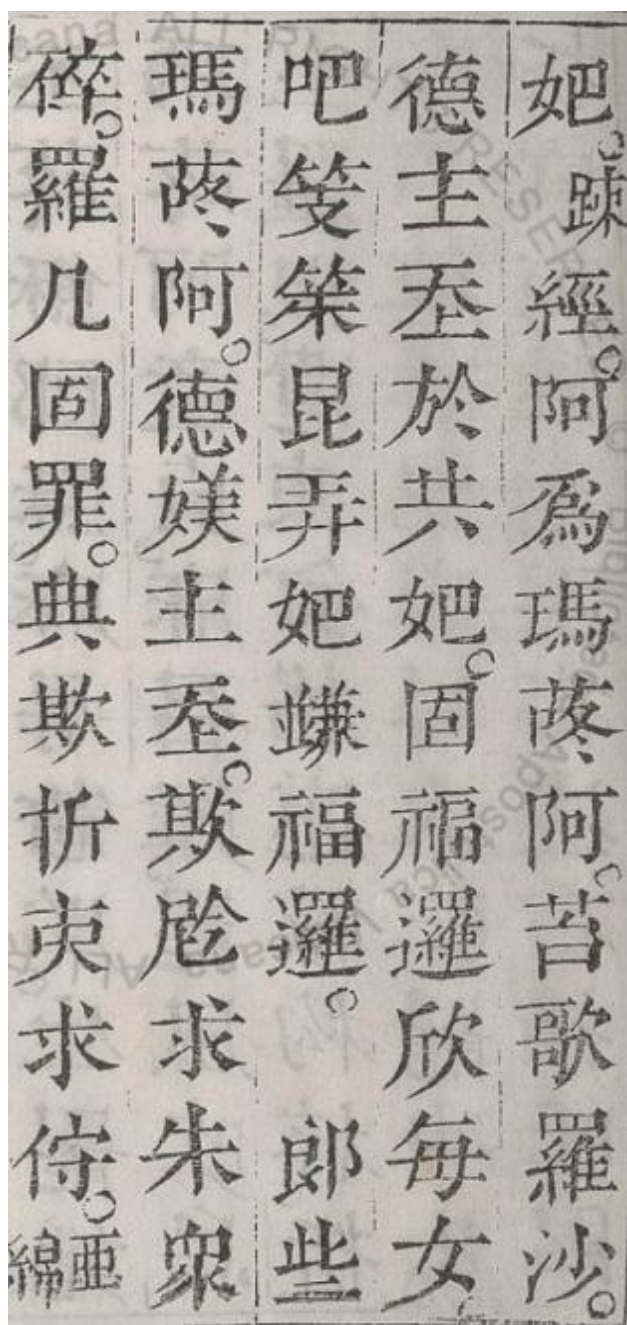 妑。踈經。阿爲瑪阿。苔歌羅沙。
德主𡗶於共妑。固福邏欣每女
吧笅昆弄妑福邏。郎些
瑪阿。德媄主𡗶。欺𫵈求朱衆
碎。羅几固罪。典欺折吏求佇。亞綿